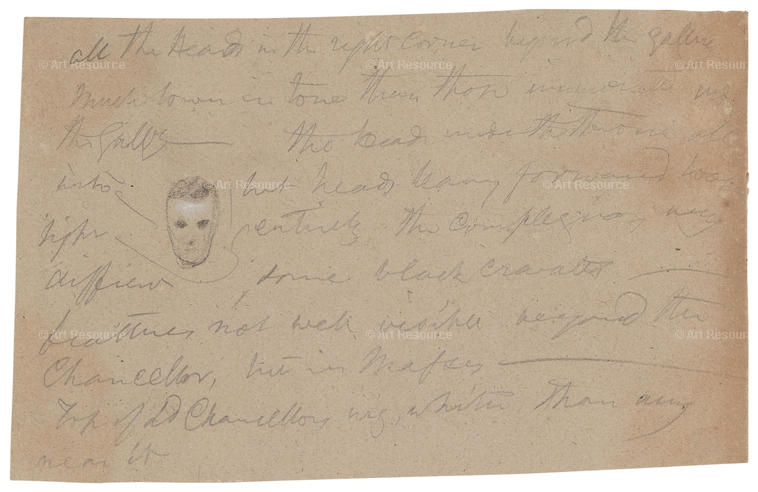 all the Heads in the right corner beyond the
much lower in tone than those
the Gallery — the heads under the throne
but heads hang forward
light entirely the complexions very
different, some black cravatts —
features not well visible beyond the
Chancellor, but in Masses —
Top of Ld Chancellors wig, whiter than any
near it
© Art Resource © Art Resource © Art Resource
© Art Resource © Art Resource © Art Resource
© Art Resource © Art Resource © Art Resource